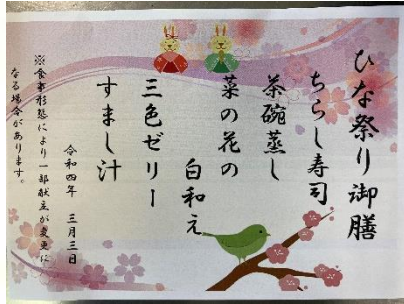 ひな祭り御膳
ちらし寿司
茶碗蒸し
菜の花の
白和え
三色ゼリー
すまし汁
令和四年 三月三日
※食事形態により一部献立が変更に
なる場合があります。